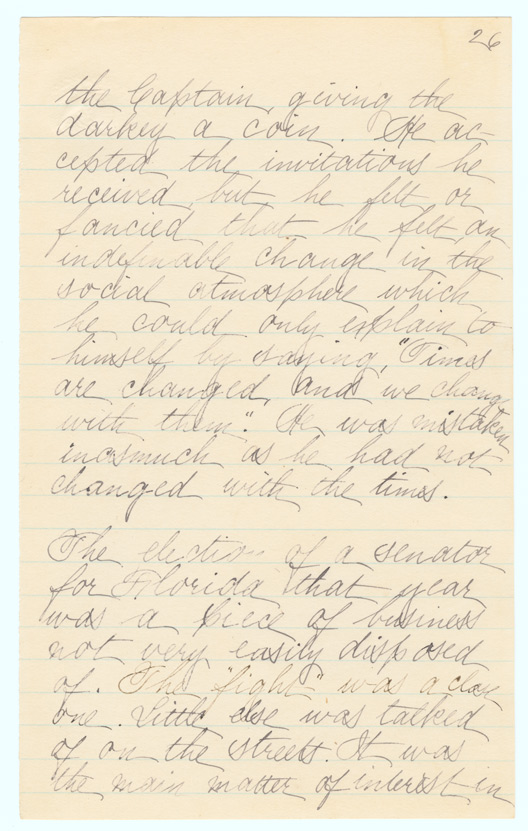 26
the Captain, giving the
darkey a coin. He ac-
cepted the invitations he
received, but he felt, or
fancied that he felt, an
indefinable change in the
social atmosphere which
he could only explain to
himself by saying, "Times
are changed, and we change
with them". He was mistaken
inasmuch as he had not
changed with the times.
The election of a senator
for Florida that year
was a piece of business
not very easily disposed
of. The "fight" was a close
one. Little else was talked
of on the streets. It was
the main matter of interest in